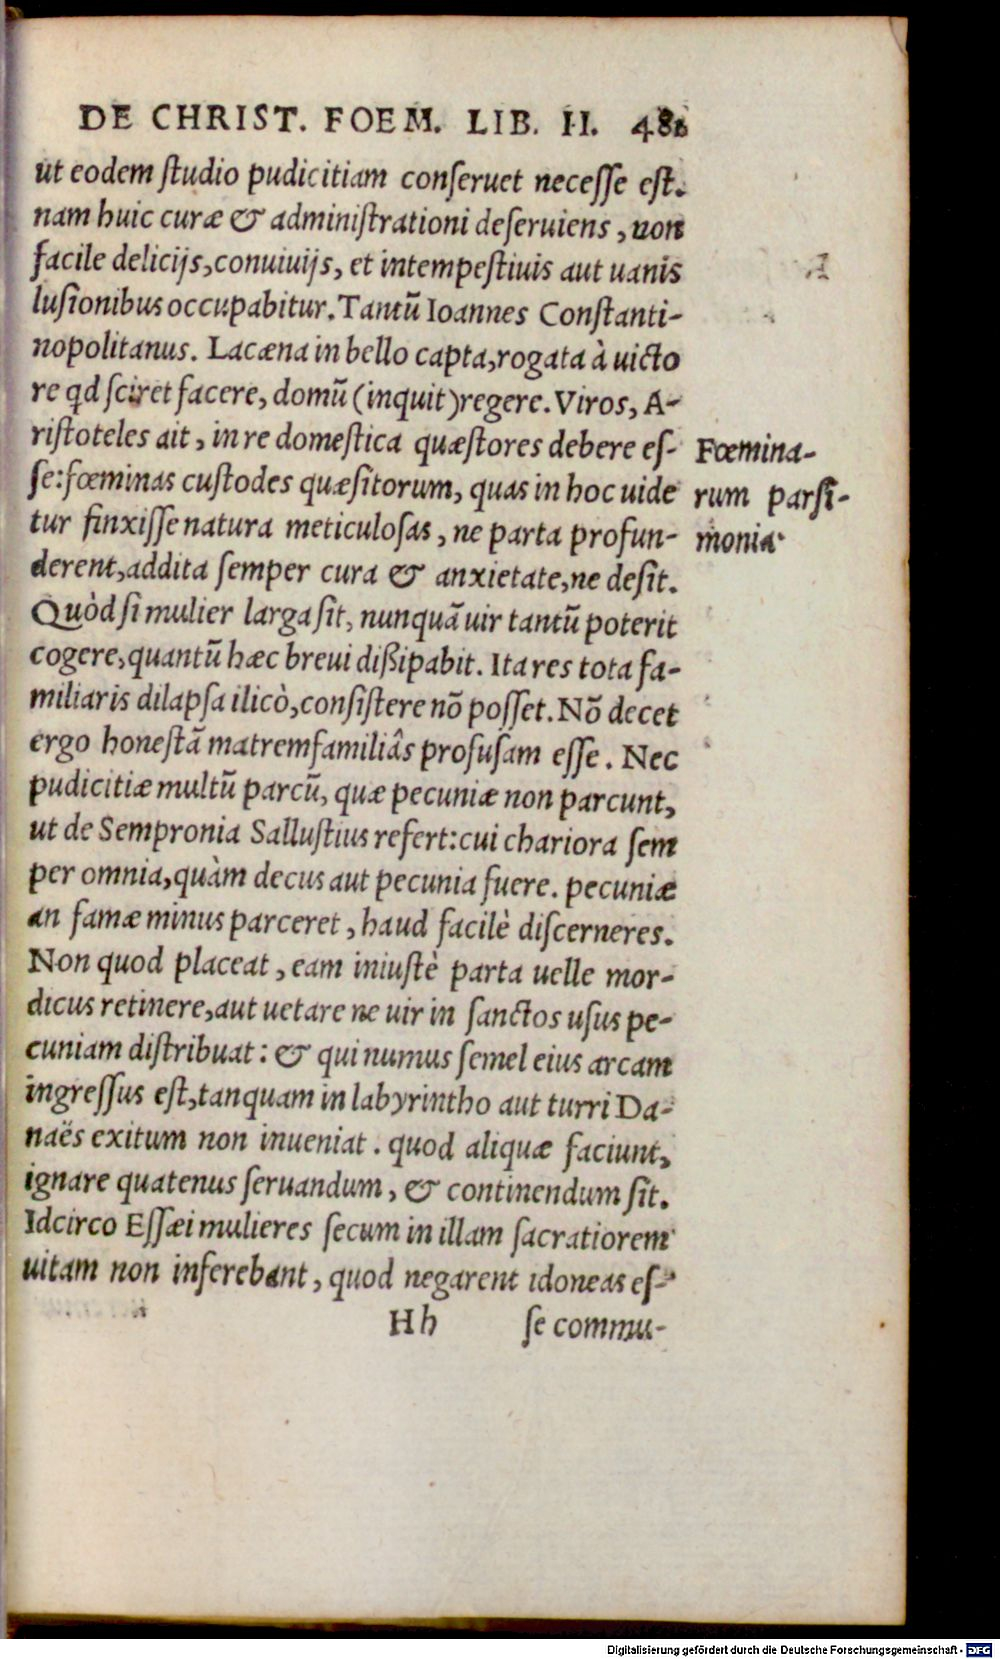 DE CHRIST. FOEM. LIB. II. 481
ut eodem ſtudio pudicitiam conſeruet neceſſe eſt.
nam huic curæ & adminiſtrationi deſeruiens, non
facile delicijs, conuiuijs, et intempeſtiuis aut uanis
luſionibus occupabitur. Tantũ Ioannes Conſtanti-
nopolitanus. Lacæna in bello capta, rogata à uicto
re qd ſciret facere, domũ (inquit) regere. Viros, A-
riſtoteles ait, in re domeſtica quæſtores debere eſ-
ſe: fœminas cuſtodes quæſitorum, quas in hoc uide
tur finxiſſe natura meticuloſas, ne parta profun-
derent, addita ſemper cura & anxietate, ne deſit.
Quòd ſi mulier larga ſit, nunquã uir tantũ poterit
cogere, quantũ hæc breui dißipabit. Ita res tota fa-
miliaris dilapſa ilicò, conſiſtere nõ poſſet. Nõ decet
ergo honeſtã matremfamiliâs profuſam eſſe. Nec
pudicitiæ multũ parcũ, quæ pecuniæ non parcunt,
ut de Sempronia Salluſtius refert: cui chariora ſem
per omnia, quàm decus aut pecunia fuere. pecuniæ
an famæ minus parceret, haud facilè diſcerneres.
Non quod placeat, eam iniuſtè parta uelle mor-
dicus retinere, aut uetare ne uir in ſanctos uſus pe-
cuniam diſtribuat: & qui numus ſemel eius arcam
ingreſſus eſt, tanquam in labyrintho aut turri Da-
naës exitum non inueniat. quod aliquæ faciunt,
ignare quatenus ſeruandum, & continendum ſit.
Idcirco Eſſæi mulieres ſecum in illam ſacratiorem
uitam non inferebant, quod negarent idoneas eſ-
Hh ſe commu-
Fœmina-
rum parſi-
monia
Digitalisierung gefördert durch die Deutsche Forschungsgemeinschaft - DFG